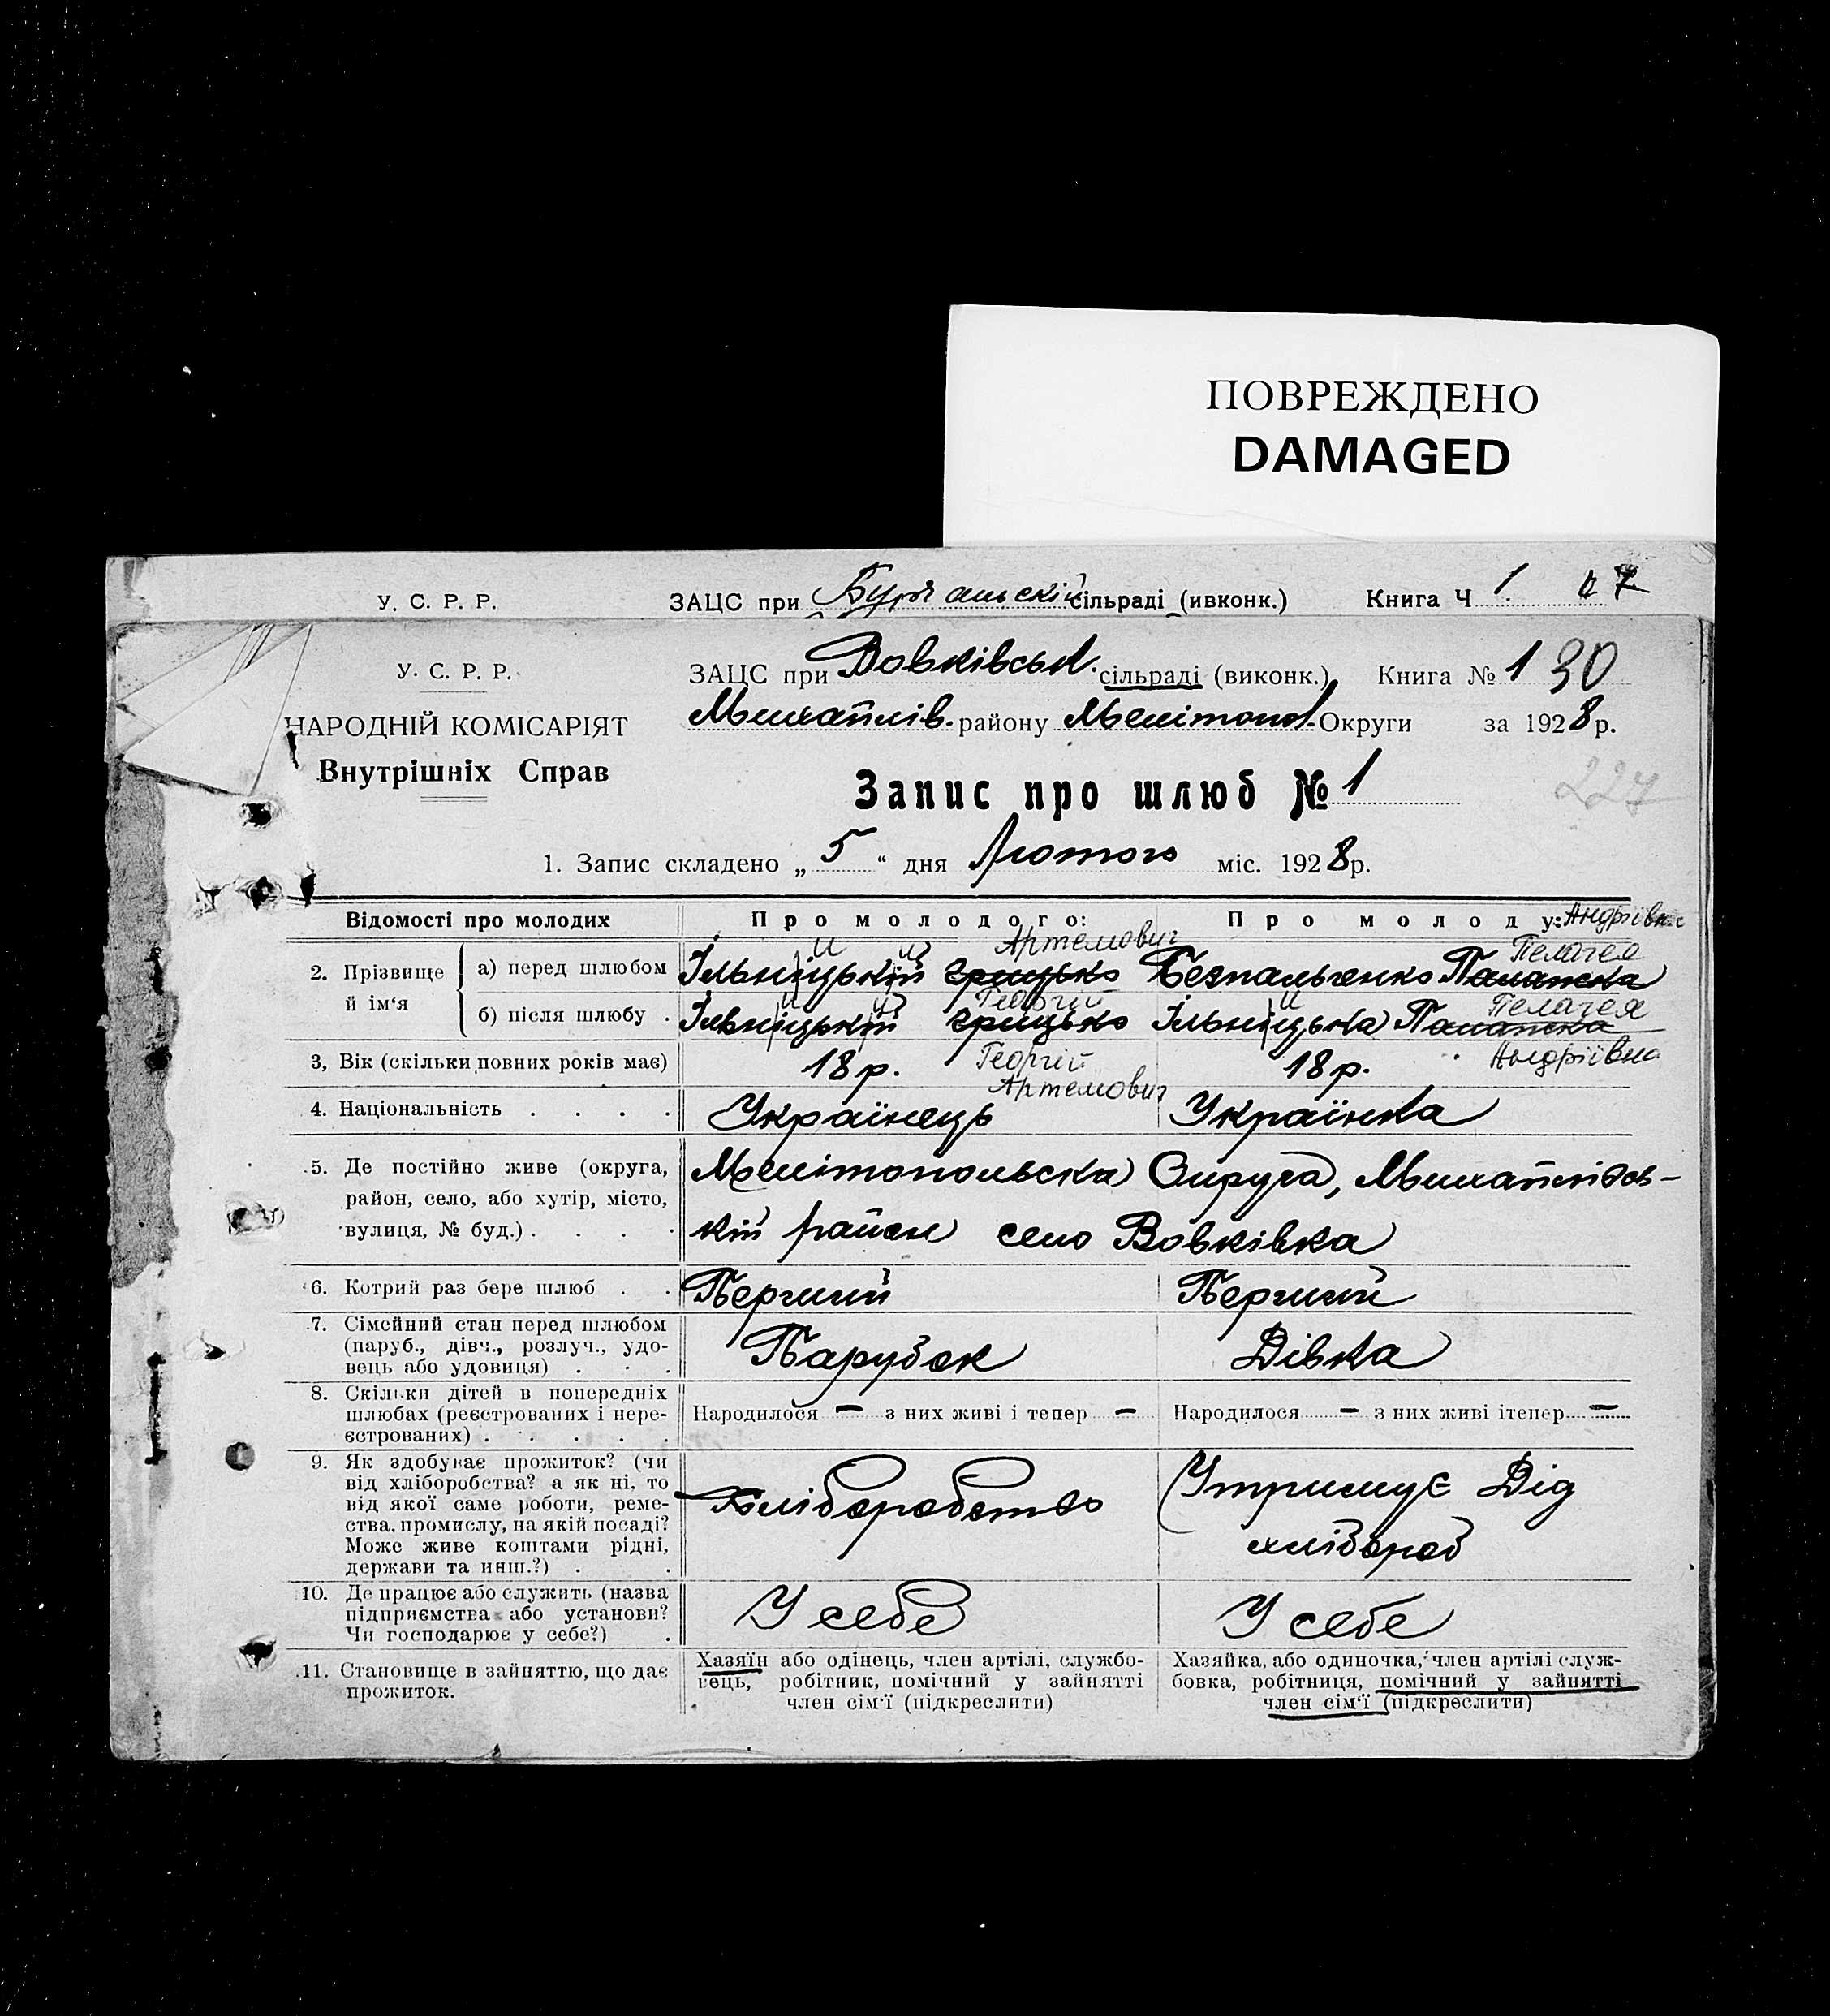 ПОВРЕЖДЕНО
DAMAGED
У. С. Р. Р. ЗАЦС при сільраді (ивконк.) Книга Ч 1.
У. С. Р. Р. ЗАЦС при Вовківськ. сільраді (виконк.) Книга № 1 30
НАРОДНІЙ КОМІСАРІЯТ Михайлів. району Мелітопол. Округи за 1928 р.
Внутрішніх Справ
Запис про шлюб № 1
227
1. Запис складено „ 5 “ дня Лютого міс. 1928 р.
Відомості про молодих Про молодого: Про молоду: Андріївна
Артемович Пелагея
2. Прізвище й ім‘я а) перед шлюбом Ільніцькій Грицько Безпальченко Палажка
Георгій Пелагея
б) після шлюбу . Ільніцькій Грицько Ільніцька Палажка
3, Вік (скільки повних років має) 18 р. Георгій 18 р. Андріївна
Артемович
4. Національність . . . . Українець Українка
5. Де постійно живе (округа, Мелітопольська Округа, Михайлівсь-
район, село, або хутір, місто,
вулиця, № буд.) . . . . кій район село Вовківка
6. Котрий раз бере шлюб . . Перший Перший
7. Сімейний стан перед шлюбом
(паруб., дівч., розлуч., удо-
вець або удовиця) . . . Парубок Дівка
8. Скільки дітей в попередніх
шлюбах (реєстрованих і нере- Народилося — з них живі і тепер — Народилося — з них живі ітепер —
єстрованих) . . . . .
9. Як здобуває прожиток? (чи
від хліборобства? а як ні, то Утримує Дід
від якої саме роботи, реме- Хліборобство
ства, промислу, на якій посаді?
Може живе коштами рідні, хлібороб
держави та инш.?) . .
10. Де працює або служить (назва
підприємства або установи? У себе У себе
Чи господарює у себе?) .
11. Становище в зайняттю, що дає
прожиток.
Хазяїн або одінець, член артілі, службо-
вець, робітник, помічний у зайнятті
член сім‘ї (підкреслити)
Хазяйка, або одиночка, член артілі служ-
бовка, робітниця, помічний у зайнятті
член сім‘ї (підкреслити)